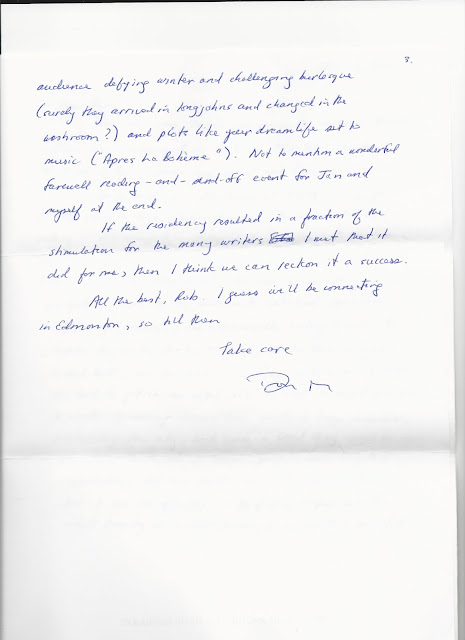 3.
audience defying winter and challenging burlesque
(surely they arrived in longjohns and changed in the
washroom?) and plots like your dreamlife set to
music ("Apres La Bohème"). Not to mention a wonderful
farewell reading-and-send-off event for Jan and
myself at the end.
If the residency resulted in a fraction of the
stimulation for the many writers I met that it
did for me, then I think we can reckon it a success.
All the best, Rob. I guess we'll be connecting
in Edmonton, so till then
Take care
Don M